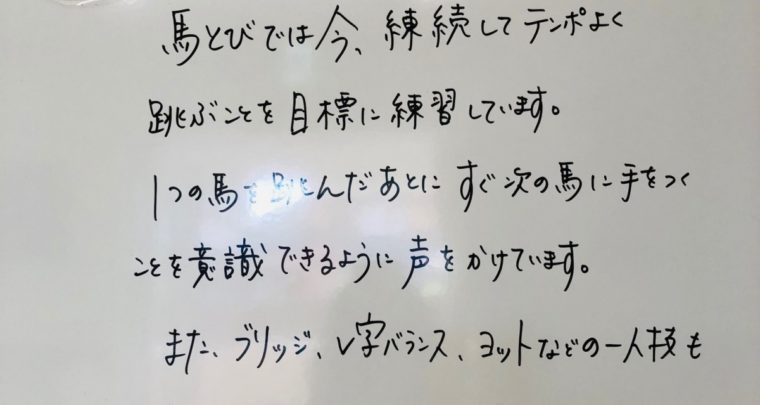 馬とびでは今、練続してテンポよく
跳ぶことを目標に練習しています。
1つの馬を跳んだあとにすぐ次の馬に手をつく
ことを意識できるように声をかけています。
また、ブリッジ、V字バランス、ヨットなどの一人技も